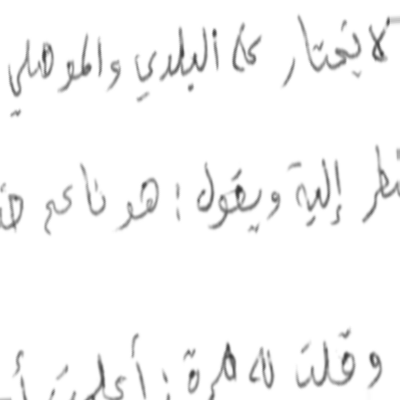 لا يختار على البلدي والموصلي
ينظر إلية ويقول : هو ناعم
وقلت له مرة : أعلمت